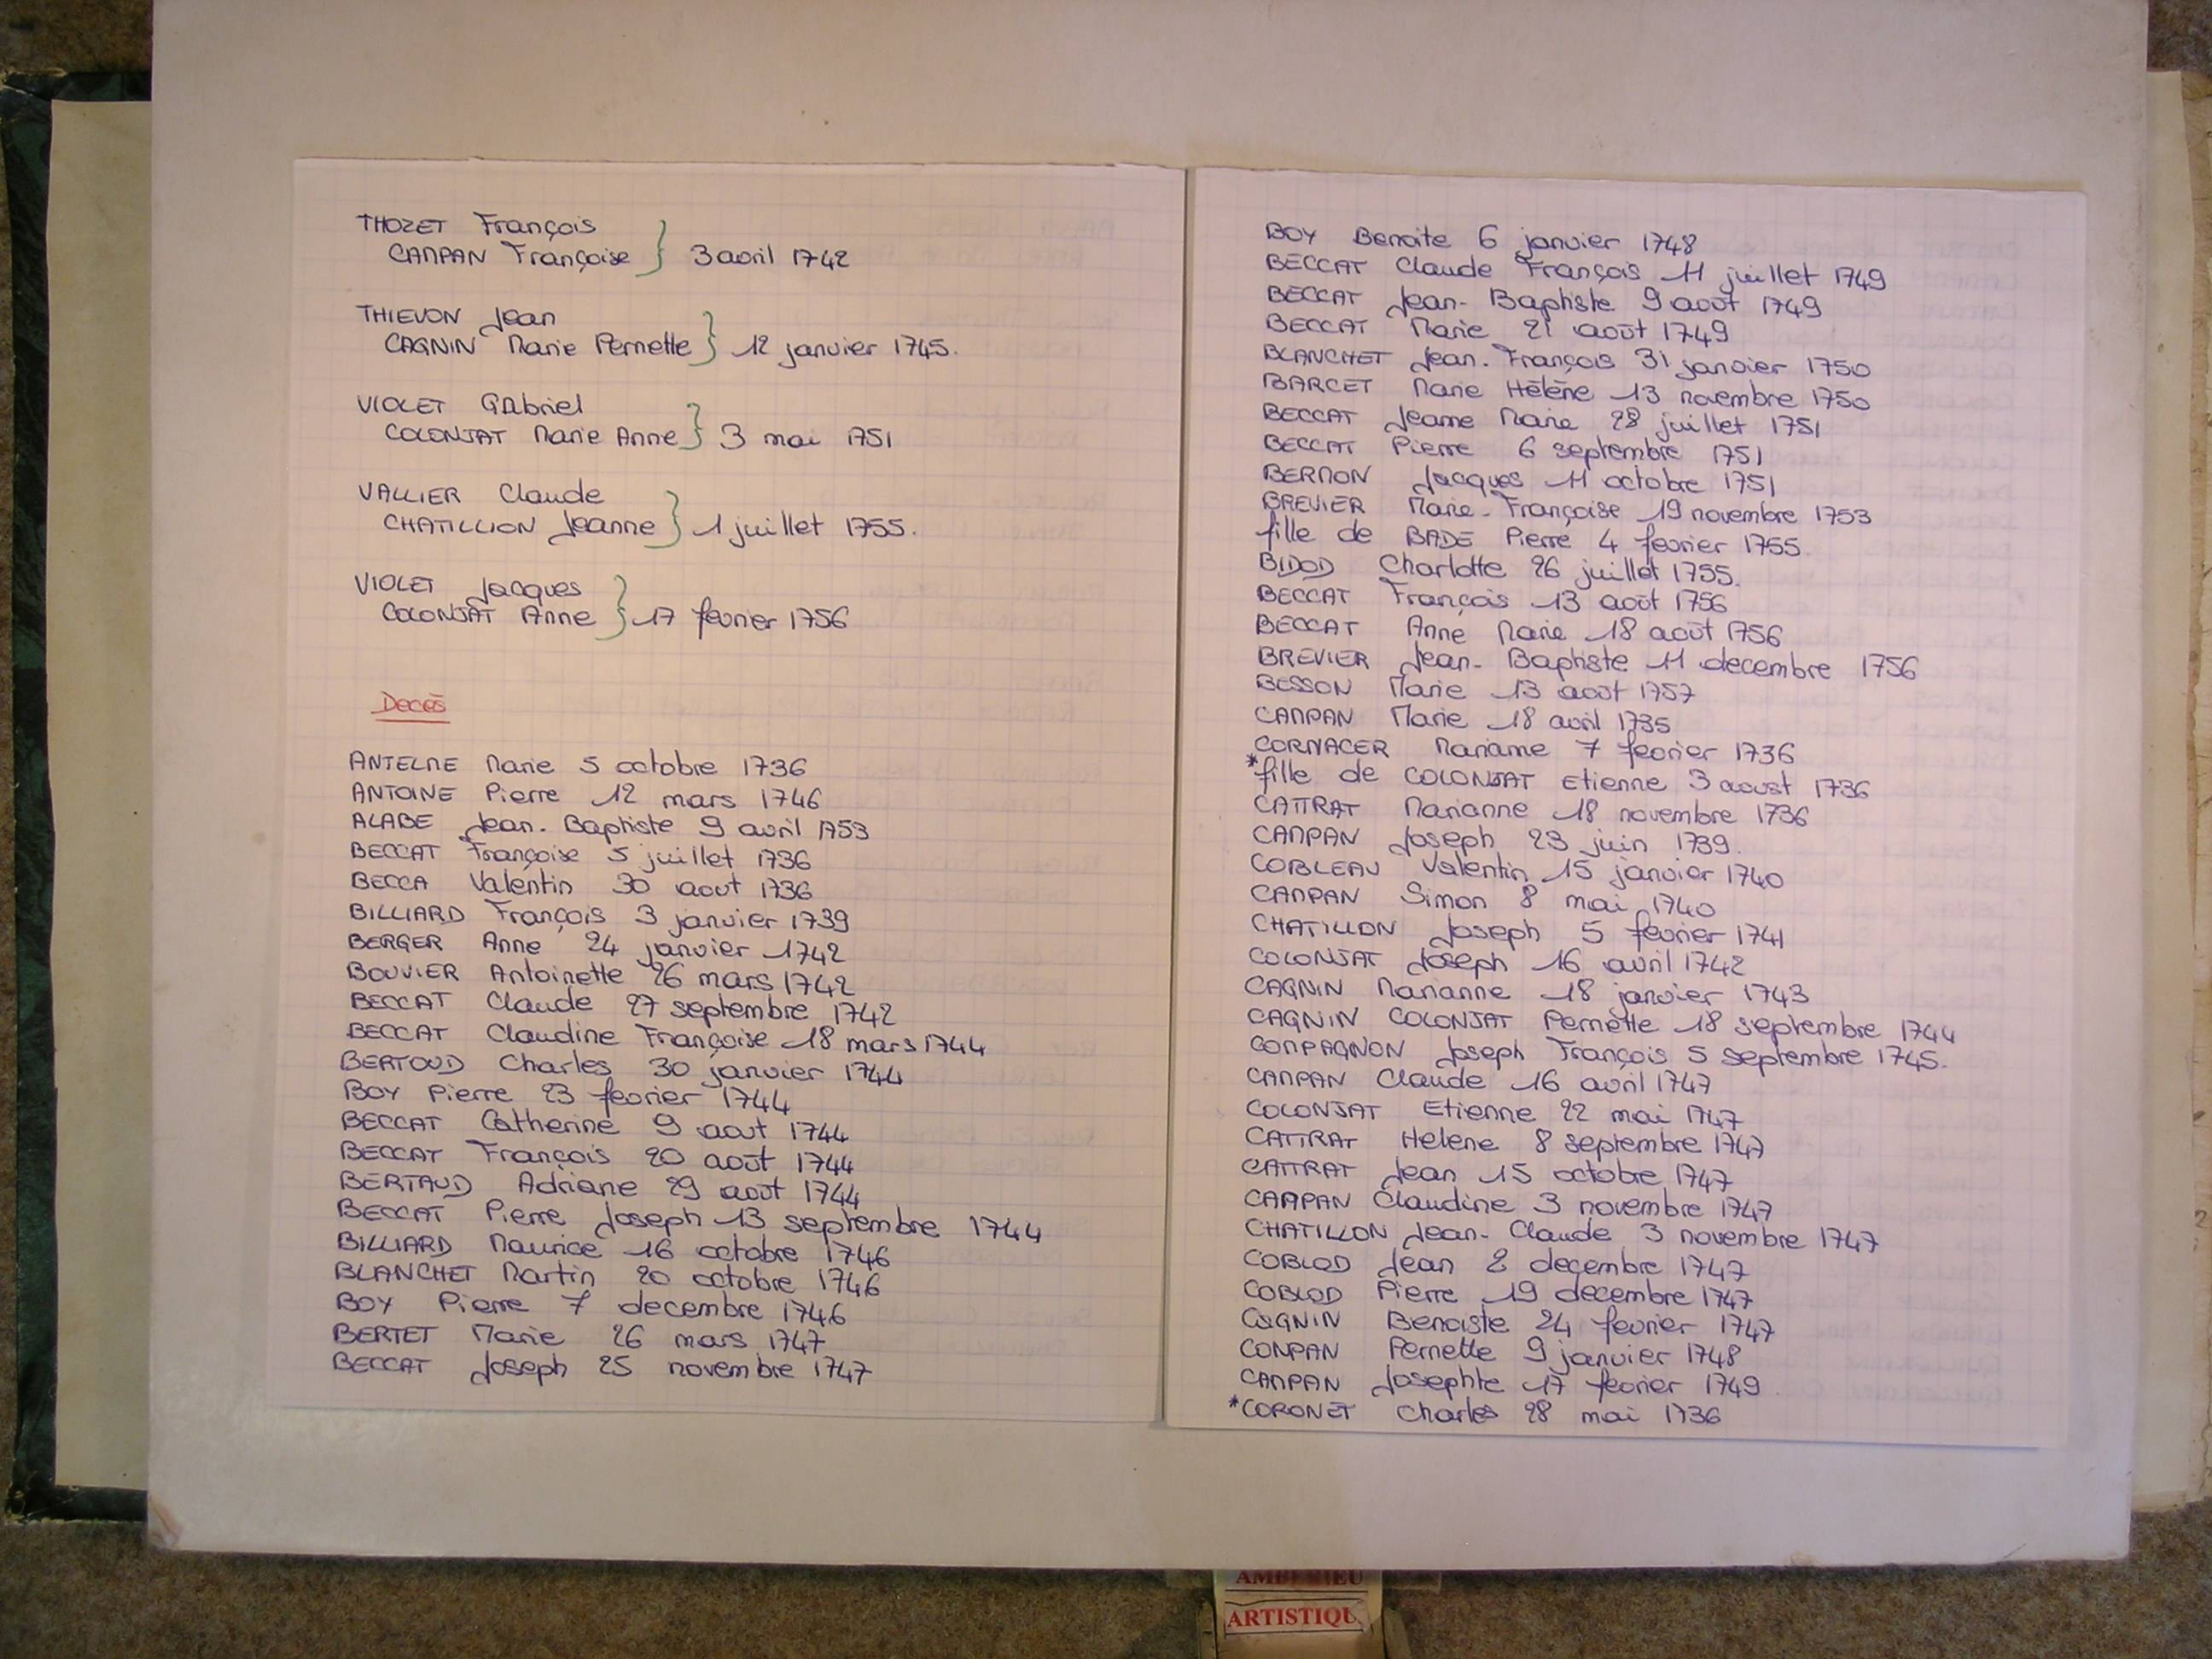 THOZET François
CAMPAN Françoise } 3 avril 1742
THIEVON Jean
CAGNIN Marie Pernette } 12 janvier 1745.
VIOLET Gabriel
COLONJAT Marie Anne } 3 mai 1751
VALLIER Claude
CHATILLION Jeanne } 1 juillet 1755.
VIOLET Jacques
COLONJAT Anne } 17 fevrier 1756
Decès
ANTELME Marie 5 octobre 1736
ANTOINE Pierre 12 mars 1746
ALABE Jean-Baptiste 9 avril 1753
BECCAT Françoise 5 juillet 1736
BECCA Valentin 30 aout 1736
BILLIARD François 3 janvier 1739
BERGER Anne 24 janvier 1742
BOUVIER Antoinette 26 mars 1742
BECCAT Claude 27 septembre 1742
BECCAT Claudine Françoise 18 mars 1744
BERTOUD Charles 30 janvier 1744
BOY Pierre 23 fevrier 1744
BECCAT Catherine 9 aout 1744
BECCAT François 20 août 1744
BERTAUD Adriane 29 août 1744
BECCAT Pierre Joseph 13 septembre 1744
BILLIARD Maurice 16 octobre 1746
BLANCHET Martin 20 octobre 1746
BOY Pierre 7 decembre 1746
BERTET Marie 26 mars 1747
BECCAT Joseph 25 novembre 1747
BOY Benoite 6 janvier 1748
BECCAT Claude François 11 juillet 1749
BECCAT Jean-Baptiste 9 août 1749
BECCAT Marie 21 août 1749
BLANCHET Jean-François 31 janvier 1750
BARCET Marie Hélène 13 novembre 1750
BECCAT Jeanne Marie 28 juillet 1751
BECCAT Pierre 6 septembre 1751
BERMON Jacques 11 octobre 1751
BREVIER Marie-Françoise 19 novembre 1753
fille de BADE Pierre 4 fevrier 1755.
BIDOD Charlotte 26 juillet 1755.
BECCAT François 13 août 1756
BECCAT Anne Marie 18 août 1756
BREVIER Jean-Baptiste 11 decembre 1756
BESSON Marie 13 août 1757
CAMPAN Marie 18 avril 1735
CORNACER Marianne 7 fevrier 1736
*fille de COLONJAT Etienne 3 aoust 1736
CATTRAT Marianne 18 novembre 1736
CAMPAN Joseph 23 juin 1739.
COBLEAU Valentin 15 janvier 1740
CAMPAN Simon 8 mai 1740
CHATILLON Joseph 5 fevrier 1741
COLONJAT Joseph 16 avril 1742
CAGNIN Marianne 18 janvier 1743
CAGNIN COLONJAT Pernette 18 septembre 1744
COMPAGNON Joseph François 5 septembre 1745.
CAMPAN Claude 16 avril 1747
COLONJAT Etienne 22 mai 1747
CATTRAT Helene 8 septembre 1747
CATTRAT Jean 15 octobre 1747
CAMPAN Claudine 3 novembre 1747
CHATILLON Jean-Claude 3 novembre 1747
COBLOD Jean 2 decembre 1747
COBLOD Pierre 19 decembre 1747
CAGNIN Benoiste 24 fevrier 1747
COMPAN Pernette 9 janvier 1748
CAMPAN Josephte 17 fevrier 1749
*CORONET Charles 28 mai 1736
ARTISTIQU